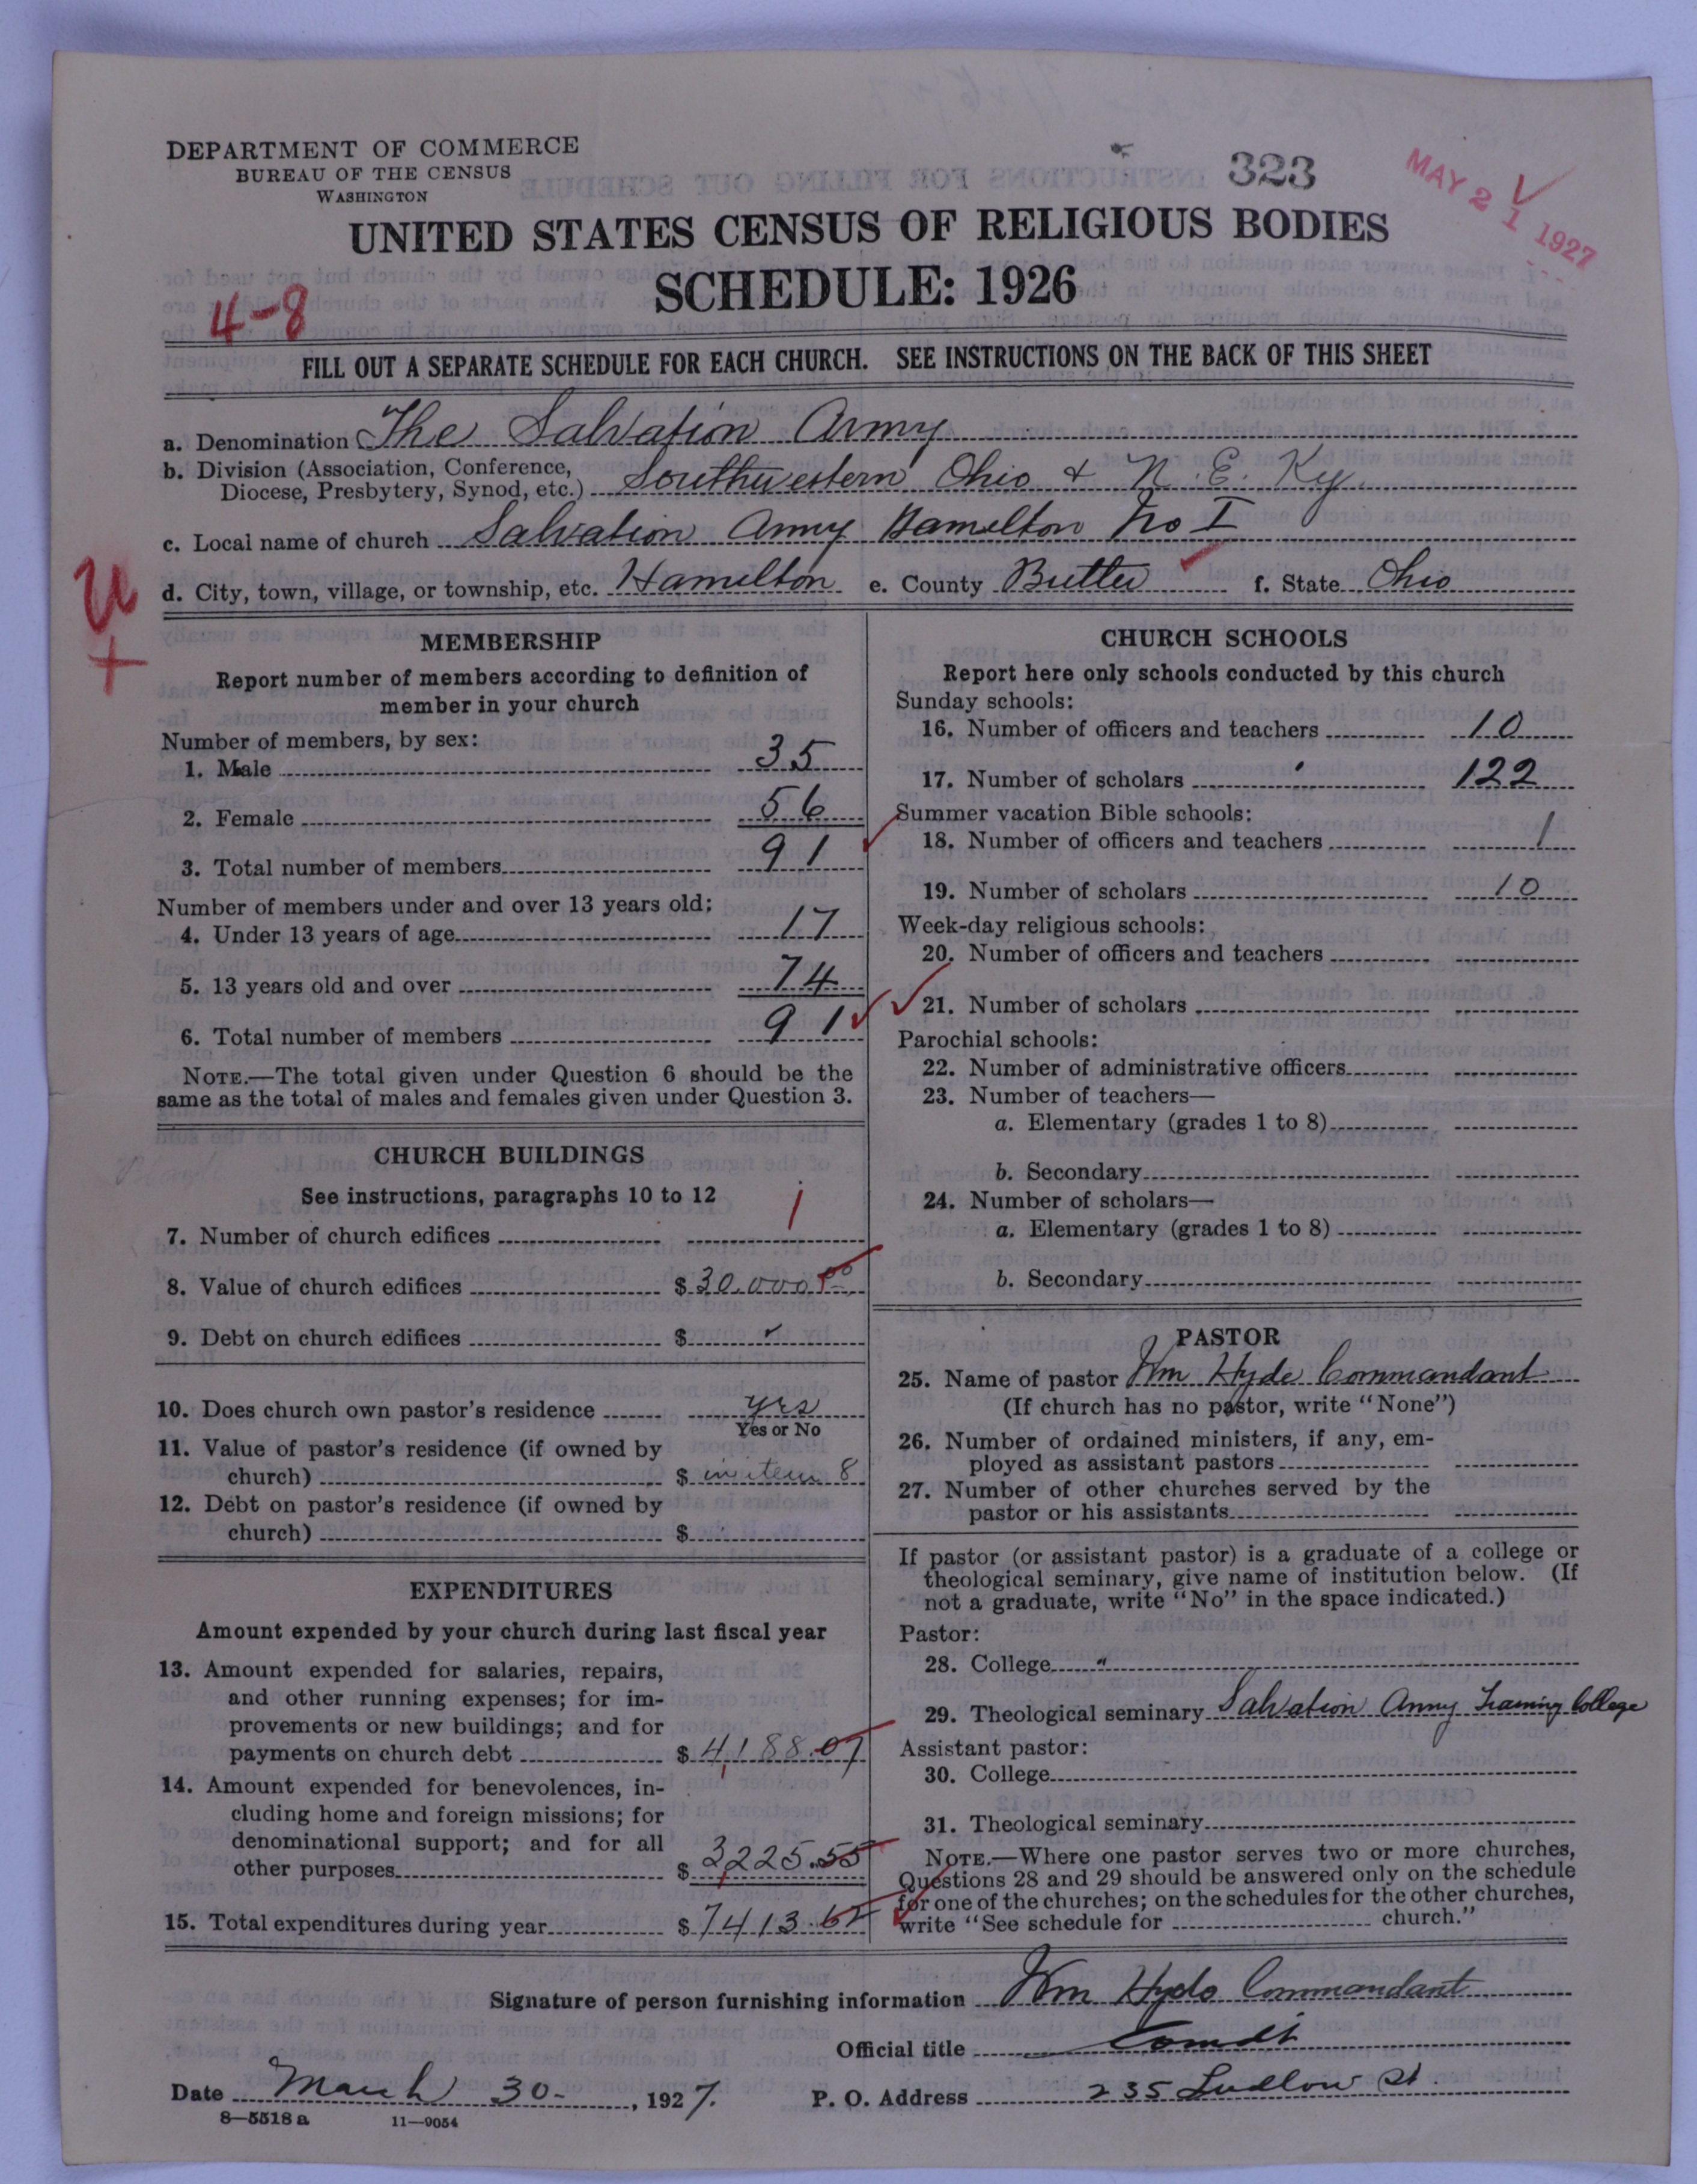 DEPARTMENT OF COMMERCE
BUREAU OF THE CENSUS
WASHINGTON
323
MAY 21 1927
UNITED STATES CENSUS OF RELIGIOUS BODIES
SCHEDULE: 1926
4-8
FILL OUT A SEPARATE SCHEDULE FOR EACH CHURCH. SEE INSTRUCTIONS ON THE BACK OF THIS SHEET
a. Denomination The Salvation Army
b. Division (Association, Conference,
Diocese, Presbytery, Synod, etc.) Southwestern Ohio & N. E. Ky.
c. Local name of church Salvation Army Hamilton No I
d. City, town, village, or township, etc. Hamilton e. County Butler f. State Ohio
U
+
MEMBERSHIP
Report number of members according to definition of
member in your church
Number of members, by sex:
1. Male 35
2. Female 56
3. Total number of members 91
Number of members under and over 13 years old:
4. Under 13 years of age 17
5. 13 years old and over 74
6. Total number of members 91
NOTE.—The total given under Question 6 should be the
same as the total of males and females given under Question 3.
CHURCH BUILDINGS
See instructions, paragraphs 10 to 12
7. Number of church edifices 1
8. Value of church edifices $30,000.00
9. Debt on church edifices $
10. Does church own pastor's residence yes
Yes or No
11. Value of pastor's residence (if owned by
church) $ in item 8
12. Debt on pastor's residence (if owned by
church) $
EXPENDITURES
Amount expended by your church during last fiscal year
13. Amount expended for salaries, repairs,
and other running expenses; for im-
provements or new buildings; and for
payments on church debt $4,188.07
14. Amount expended for benevolences, in-
cluding home and foreign missions; for
denominational support; and for all
other purposes $3,225.55
15. Total expenditures during year $7413.62
CHURCH SCHOOLS
Report here only schools conducted by this church
Sunday schools:
16. Number of officers and teachers 10
17. Number of scholars 122
Summer vacation Bible schools:
18. Number of officers and teachers 1
19. Number of scholars 10
Week-day religious schools:
20. Number of officers and teachers
21. Number of scholars
Parochial schools:
22. Number of administrative officers
23. Number of teachers—
a. Elementary (grades 1 to 8)
b. Secondary
24. Number of scholars—
a. Elementary (grades 1 to 8)
b. Secondary
PASTOR
25. Name of pastor Wm Hyde Commandant
(If church has no pastor, write "None")
26. Number of ordained ministers, if any, em-
ployed as assistant pastors
27. Number of other churches served by the
pastor or his assistants
If pastor (or assistant pastor) is a graduate of a college or
theological seminary, give name of institution below. (If
not a graduate, write "No" in the space indicated.)
Pastor:
28. College "
29. Theological seminary Salvation Army Training College
Assistant pastor:
30. College
31. Theological seminary
NOTE.—Where one pastor serves two or more churches,
Questions 28 and 29 should be answered only on the schedule
for one of the churches; on the schedules for the other churches,
write "See schedule for church."
Signature of person furnishing information Wm Hyde Commandant
Official title Comdt
Date March 30 - , 1927. P. O. Address 235 Ludlow St.
8—5518 a 11—9054